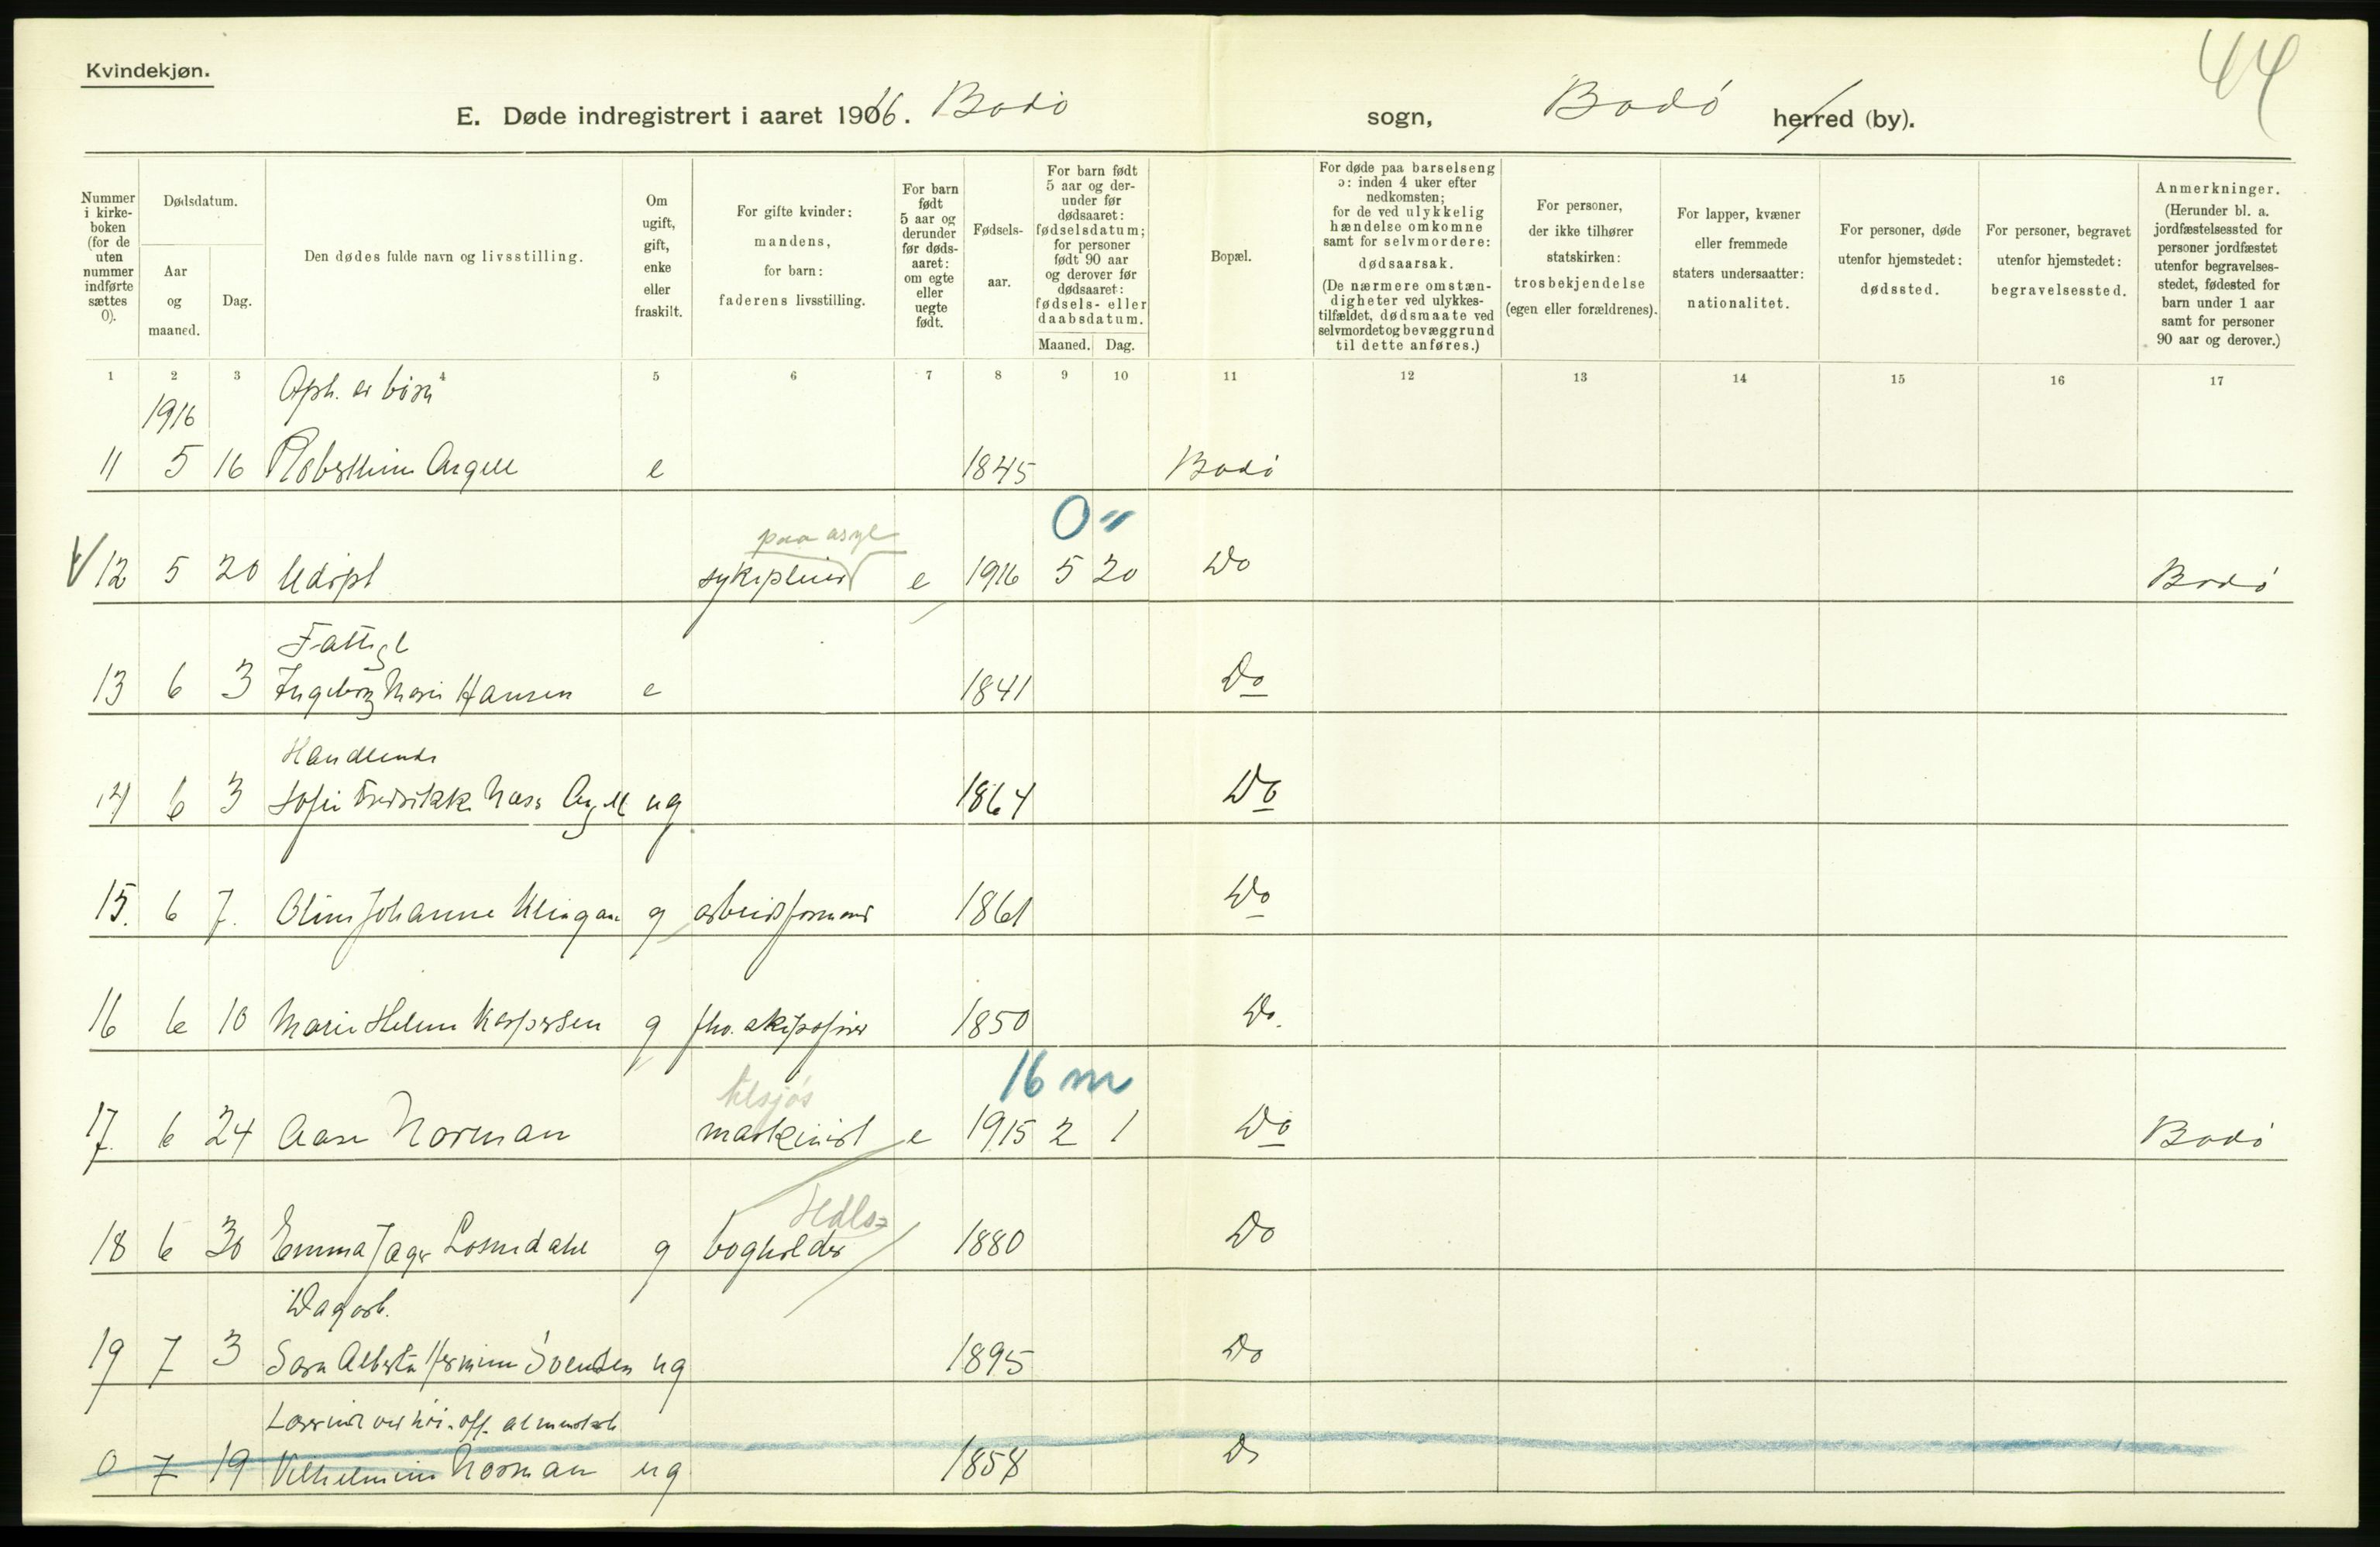 Kvindekjøn.
44
E. Døde indregistrert i aaret 1916. Bodø sogn, Bodø herred (by).
Nummer i kirke-boken (for de uten nummer indførte sættes 0).
Dødsdatum.
Aar og maaned.
Dag.
Den dødes fulde navn og livsstilling.
Om ugift, gift, enke eller fraskilt.
For gifte kvinder: mandens, for barn: faderens livsstilling.
For barn født 5 aar og derunder før døds-aaret: om egte eller uegte født.
Fødsels-aar.
For barn født 5 aar og der-under før dødsaaret: fødselsdatum; for personer født 90 aar og derover før dødsaaret: fødsels- eller daabsdatum.
Maaned. Dag.
Bopæl.
For døde paa barselseng ɔ: inden 4 uker efter nedkomsten; for de ved ulykkelig hændelse omkomne samt for selvmordere: dødsaarsak. (De nærmere omstæn-digheter ved ulykkes-tilfældet, dødsmaate ved selvmordet og bevæggrund til dette anføres.)
For personer, der ikke tilhører statskirken: trosbekjendelse (egen eller forældrenes).
For lapper, kvæner eller fremmede staters undersaatter: nationalitet.
For personer, døde utenfor hjemstedet: dødssted.
For personer, begravet utenfor hjemstedet: begravelsessted.
Anmerkninger. (Herunder bl. a. jordfæstelsessted for personer jordfæstet utenfor begravelses-stedet, fødested for barn under 1 aar samt for personer 90 aar og derover.)
1 2 3 4 5 6 7 8 9 10 11 12 13 14 15 16 17
1916 Oph. av børn
11 5 16 Roberthine Angell e 1845 Bodø
0 "
paa asyl
12 5 20 Udøpt sykepleier e 1916 5 20 Do Bodø
Fattigl
13 6 3 Ingeborg Marie Hansen e 1841 Do
Handlende
14 6 3 Sofie Fredrikke Næss Angell ug 1864 Do
15. 6 7. Oline Johanne Klingan g arbeidsformand 1861 Do
16 6 10 Marie Helene Kaspersen g fhv. skipsfører 1850 Do.
tilsjøs 16 m
17. 6 24 Aase Norman maskinist e 1915 2 1 Do Bodø
Hdls=
18 6 30 Emma Jæger Losnedahl g bogholder 1880 Do
Dagarb.
19 7 3 Sara Alberta Hermine Svendsen ug 1895 Do
Lærerinde ved
0 7 19 Vilhelmine Norman ug 1858 Do